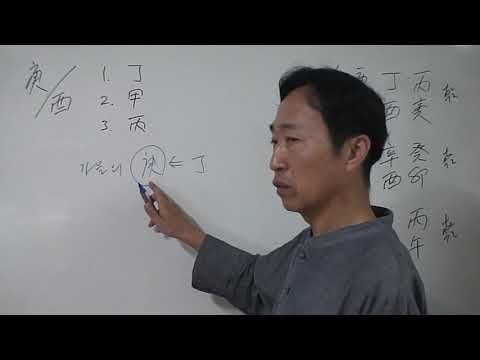 庚/酉
1. 丁
2. 甲
3. 丙
가을의 庚 ⇐ 丁
丁 丙 乾
酉 亥
辛 癸 乾
酉 卯
丙 乾
午